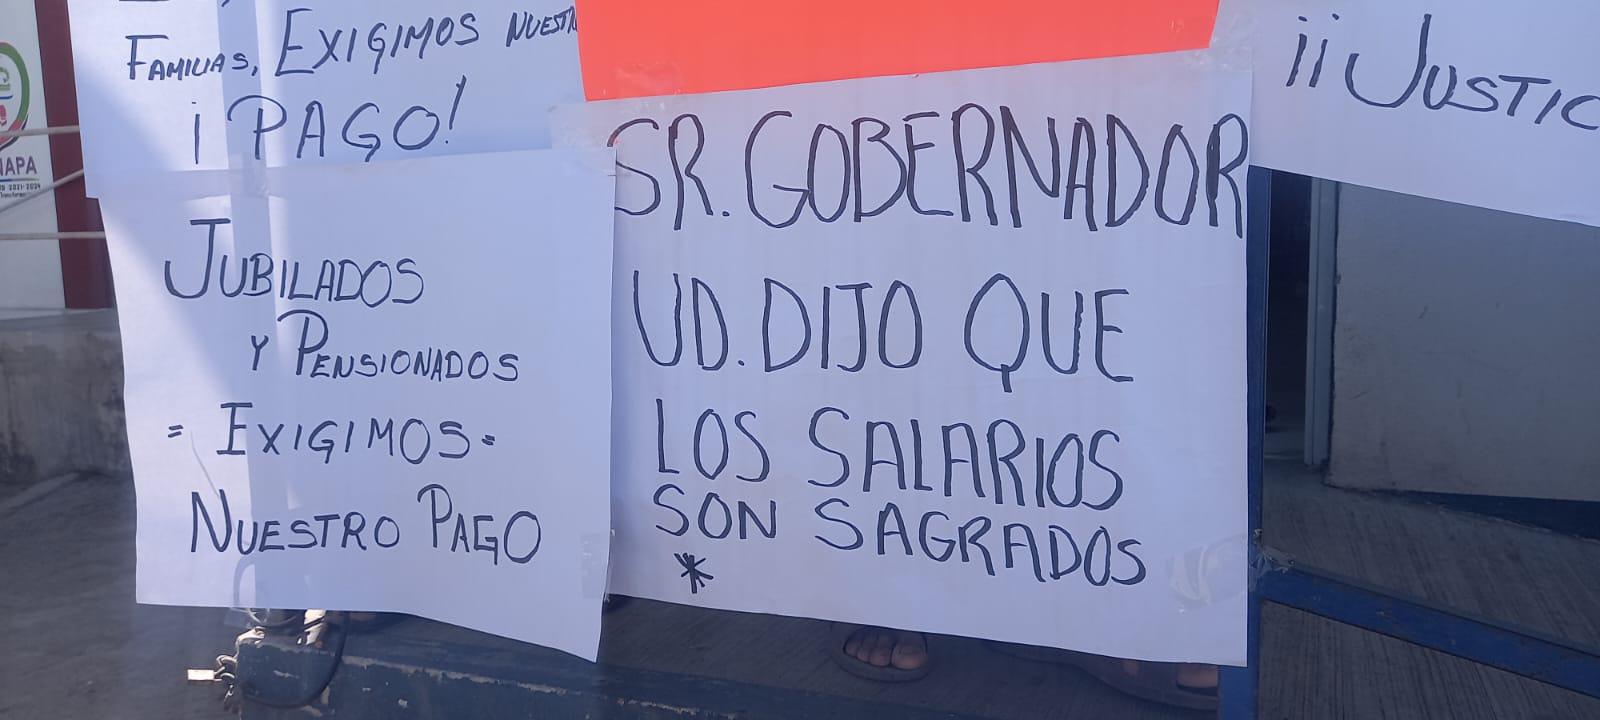 FAMILIAS, EXIGIMOS
¡PAGO!
JUBILADOS
Y PENSIONADOS
= EXIGIMOS =
NUESTRO PAGO
SR. GOBERNADOR
UD. DIJO QUE
LOS SALARIOS
SON SAGRADOS
*
¡¡JUSTIC
NAPA
2021-2024